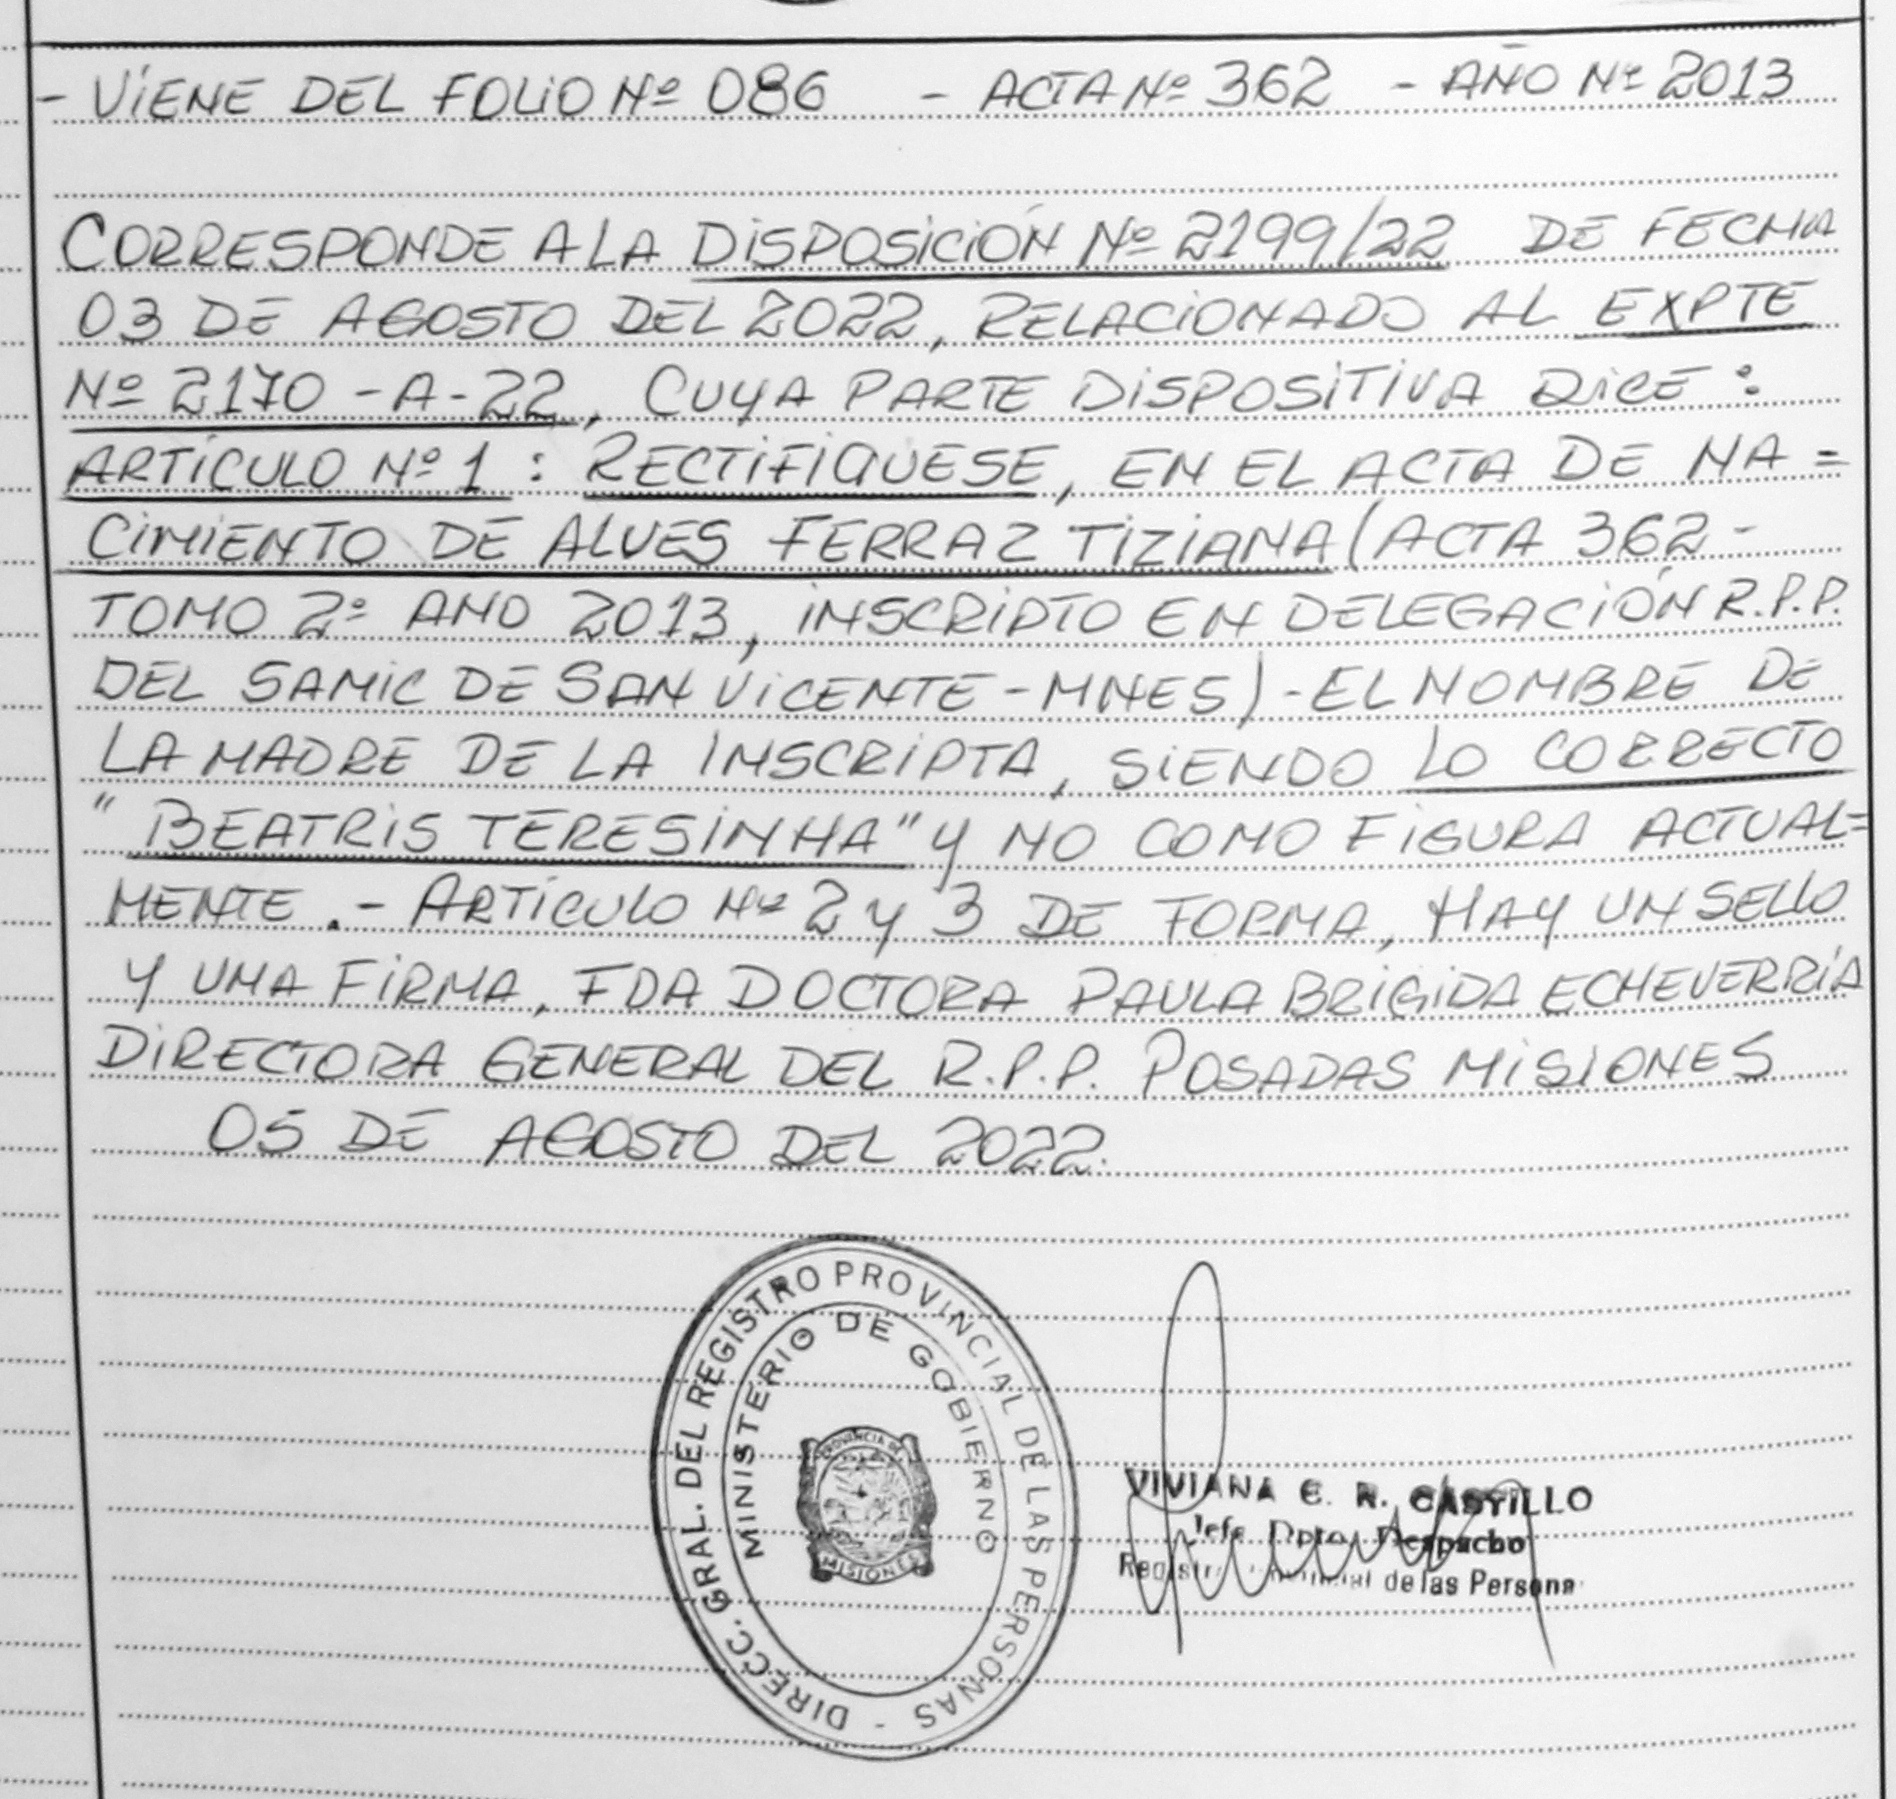 - VIENE DEL FOLIO Nº 086 - ACTA Nº 362 - AÑO Nº 2013
CORRESPONDE A LA DISPOSICIÓN Nº 2199/22 DE FECHA
03 DE AGOSTO DEL 2022, RELACIONADO AL EXPTE
Nº 2170 - A - 22, CUYA PARTE DISPOSITIVA DICE :
ARTÍCULO Nº 1 : RECTIFIQUESE, EN EL ACTA DE NA =
CIMIENTO DE ALVES FERRAZ TIZIANA (ACTA 362 -
TOMO 2º ANO 2013, INSCRIPTO EN DELEGACIÓN R.P.P.
DEL SAMIC DE SAN VICENTE - MNES) - EL NOMBRE DE
LA MADRE DE LA INSCRIPTA, SIENDO LO CORRECTO
"BEATRIS TERESINHA" Y NO COMO FIGURA ACTUAL=
MENTE .- ARTÍCULO Nº 2 Y 3 DE FORMA, HAY UN SELLO
Y UNA FIRMA, FDA DOCTORA PAULA BRIGIDA ECHEVERRÍA
DIRECTORA GENERAL DEL R.P.P. POSADAS MISIONES
05 DE AGOSTO DEL 2022.
DIRECC. GRAL. DEL REGISTRO PROVINCIAL DE LAS PERSONAS -
MINISTERIO DE GOBIERNO
PROVINCIA DE
MISIONES
VIVIANA E. R. CASTILLO
Jefe Dpto. Despacho
de las Persona